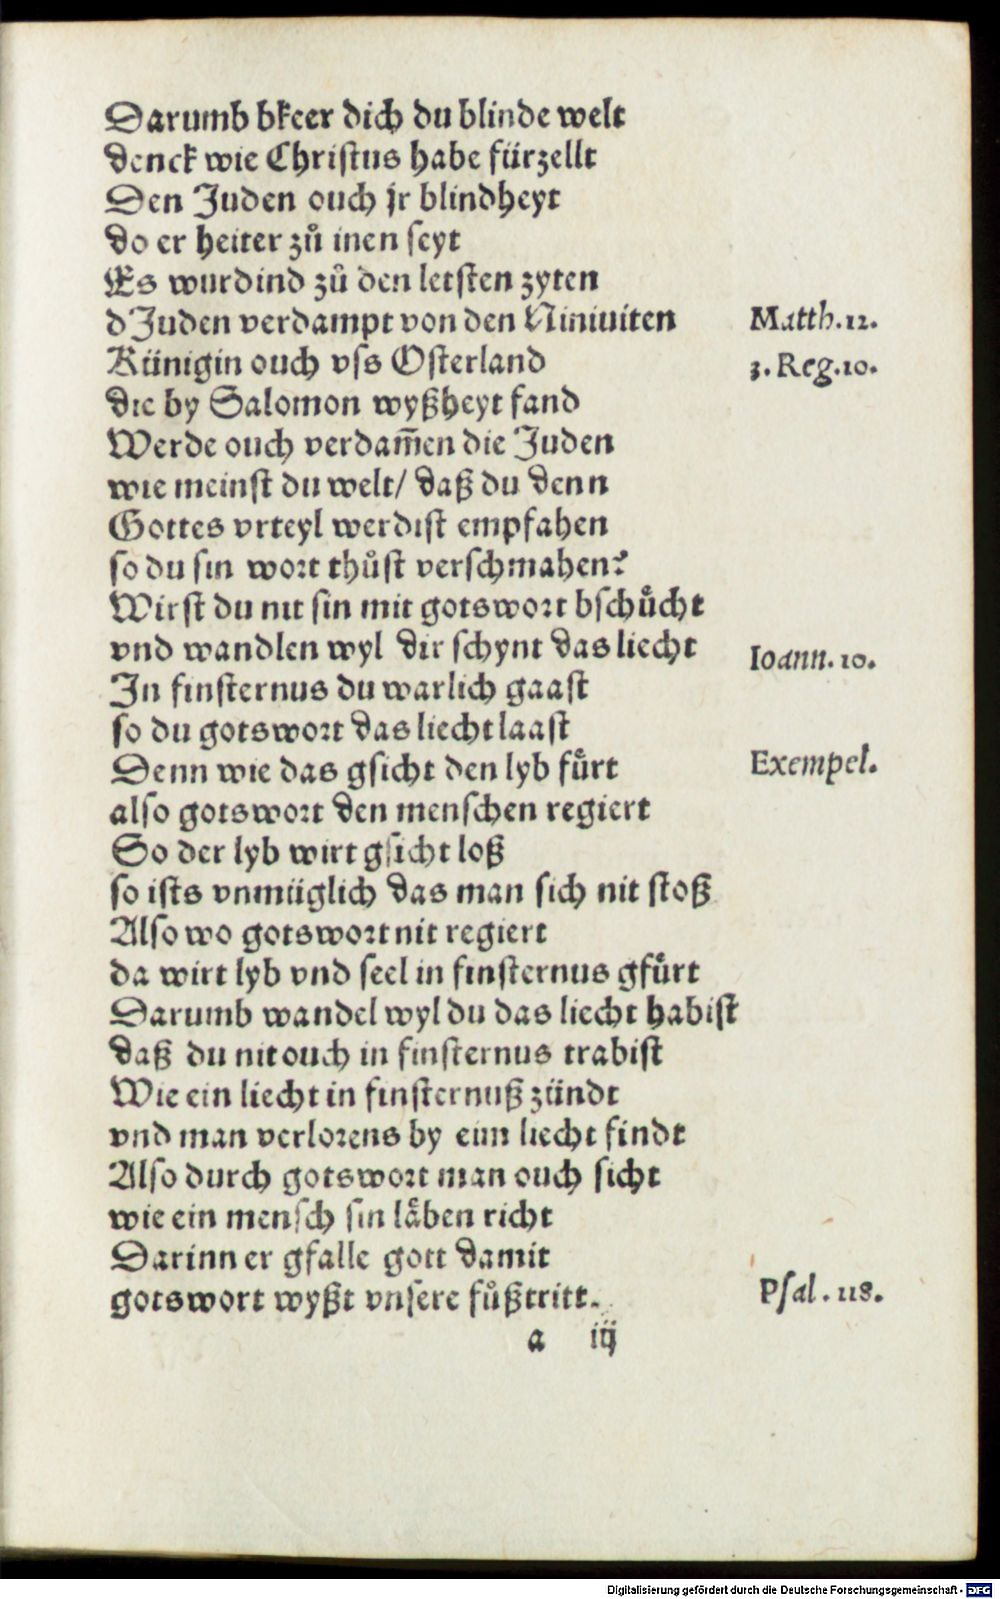 Darumb bkeer dich du blinde welt
denck wie Christus habe fürzellt
Den Juden ouch jr blindheyt
do er heiter zů inen seyt
Es wurdind zů den letsten zyten
d'Juden verdampt von den Niniuiten
Matth. 12.
Künigin ouch vss Osterland
3. Reg. 10.
die by Salomon wyßheyt fand
Werde ouch verdam̄en die Juden
wie meinst du welt/ daß du denn
Gottes vrteyl werdist empfahen
so du sin wort thůst verschmahen?
Wirst du nit sin mit gotswort bschůcht
vnd wandlen wyl dir schynt das liecht
Ioann. 10.
In finsternus du warlich gaast
so du gotswort das liecht laast
Denn wie das gsicht den lyb fůrt
Exempel.
also gotswort den menschen regiert
So der lyb wirt gsicht loß
so ists vnmüglich das man sich nit stoß
Also wo gotswort nit regiert
da wirt lyb vnd seel in finsternus gfůrt
Darumb wandel wyl du das liecht habist
daß du nit ouch in finsternus trabist
Wie ein liecht in finsternuß zündt
vnd man verlorens by eim liecht findt
Also durch gotswort man ouch sicht
wie ein mensch sin låben richt
Darinn er gfalle gott damit
gotswort wyßt vnsere fůßtritt.
Psal. 118.
a iij
Digitalisierung gefördert durch die Deutsche Forschungsgemeinschaft - DFG